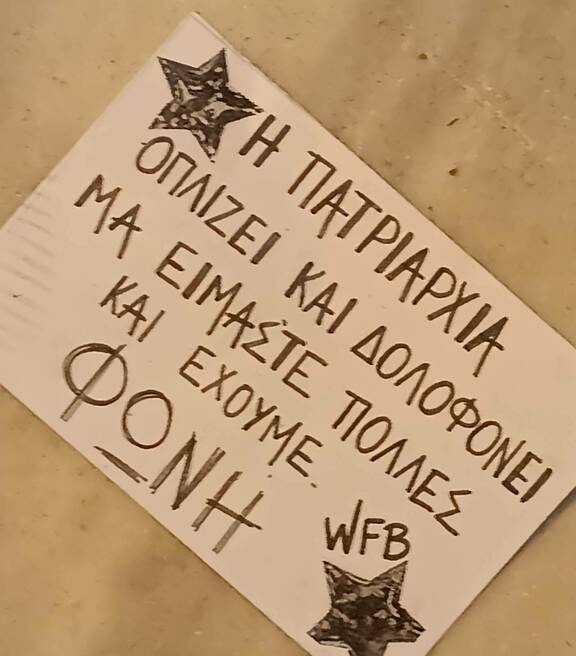 Η ΠΑΤΡΙΑΡΧΙΑ
ΟΠΛΙΖΕΙ ΚΑΙ ΔΟΛΟΦΟΝΕΙ
ΜΑ ΕΙΜΑΣΤΕ ΠΟΛΛΕΣ
ΚΑΙ ΕΧΟΥΜΕ
ΦΩΝΗ
WFB